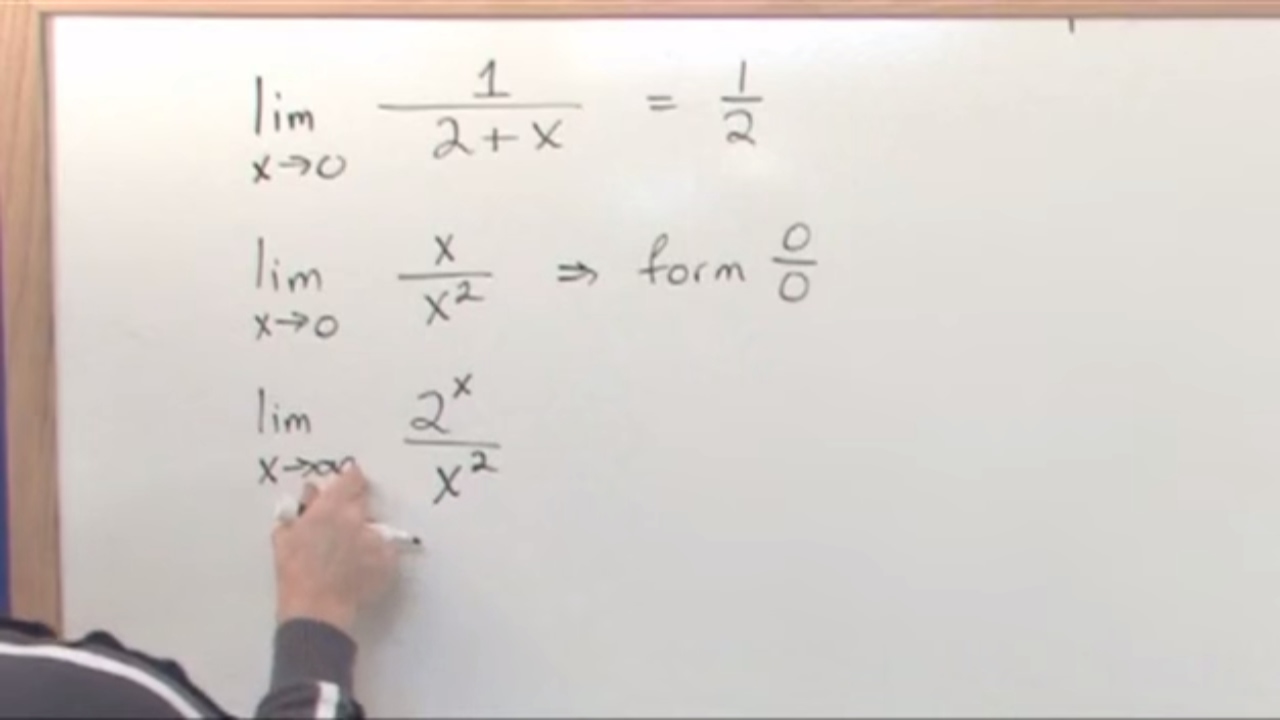 lim x→0 1/(2+x) = 1/2
lim x→0 x/x² ⇒ form 0/0
lim x→∞ 2ˣ/x²